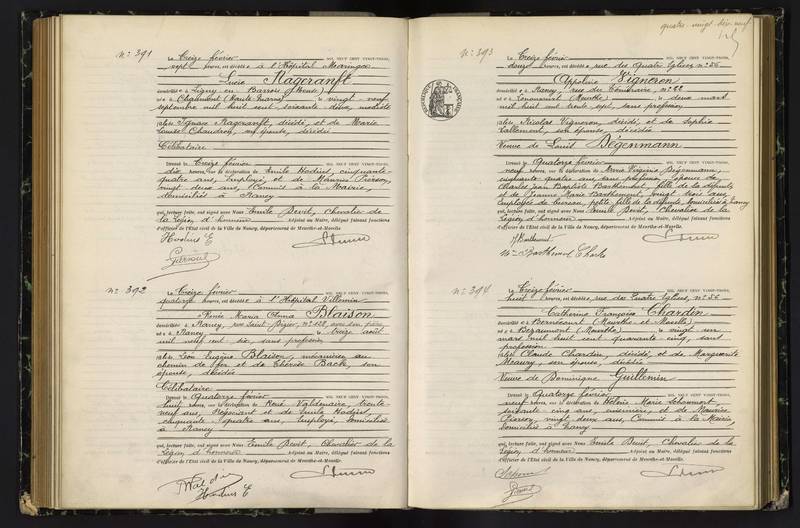 N° 391
Le Treize février MIL NEUF CENT VINGT-TROIS,
sept heures, est décédé à l'Hôpital Maringer
Lucie Rageranft
domiciliée à Ligny en Barrois (Meuse)
né à Chalmont (Haute Marne) le vingt-neuf
septembre mil huit cent soixante deux, modiste
fille Ignace Rageranft, décédé, et de Marie
Louise Chaudron, son épouse, décédée
Célibataire
Dressé le Treize février MIL NEUF CENT VINGT-TROIS,
dix heures, sur la déclaration de Emile Hodiul, cinquante
quatre ans, employé, et de Maurice Pierson,
vingt deux ans, Commis à la Mairie,
domiciliés à Nancy
qui, lecture faite, ont signé avec Nous Emile Devit, Chevalier de
la Légion d'honneur Adjoint au Maire, délégué faisant fonctions
d'officier de l'Etat civil de la Ville de Nancy, département de Meurthe-et-Moselle.
N° 392
Le Treize février MIL NEUF CENT VINGT-TROIS,
quatorze heures, est décédée à l'Hôpital Villemin
Renée Maria Anna Blaison
domiciliée à Nancy, rue Saint Dizier, n° 128, avec son père
né à Nancy le treize août
mil neuf cent six, sans profession
fille Léon Eugène Blaison, mécanicien au
chemin de fer et de Thérèse Back, son
épouse, décédée
Célibataire
Dressé le Quatorze février MIL NEUF CENT VINGT-TROIS,
huit heures, sur la déclaration de René Valdenaire, trente
neuf ans, Négociant et de Emile Hodiul,
cinquante quatre ans, employé, domiciliés
à Nancy
qui, lecture faite, ont signé avec Nous Emile Devit, Chevalier de la
Légion d'honneur Adjoint au Maire, délégué faisant fonctions
d'officier de l'Etat civil de la Ville de Nancy, département de Meurthe-et-Moselle.
quatre-vingt-dix-neuf
N° 393
Le Treize février MIL NEUF CENT VINGT-TROIS,
douze heures, est décédée rue des Quatre Eglises, n° 56
Appoline Vigneron
domiciliée à Nancy, rue du n° 62
né à (Moselle) le deux mars
mil huit cent trente sept, sans profession
fille Nicolas Vigneron, décédé, et de Sophie
Lallement, son épouse, décédée
Veuve de Louis Dégenmann
Dressé le Quatorze février MIL NEUF CENT VINGT-TROIS,
neuf heures, sur la déclaration de Anna Virginie Dégenmann,
cinquante quatre ans, sans profession, épouse de
Charles Jean Baptiste Barthemhot, fille de la défunte,
et de Jeanne Marie Barthemont, vingt trois ans,
employée de bureau, petite fille de la défunte, domiciliées à Nancy
qui, lecture faite, ont signé avec Nous Emile Devit, Chevalier de la
Légion d'honneur Adjoint au Maire, délégué faisant fonctions
d'officier de l'Etat civil de la Ville de Nancy, département de Meurthe-et-Moselle.
N° 394
Le Treize février MIL NEUF CENT VINGT-TROIS,
huit heures, est décédée rue des Quatre Eglises, n° 56
Catherine Françoise Chardin
domiciliée à Bernécourt (Meurthe et Moselle)
né à Bezaumont (Moselle) le vingt un
mars mil huit cent quarante cinq, sans
profession
fille Claude Chardin, décédé, et de Marguerite
Meaury, son épouse, décédée
Veuve de Dominique Guillemin
Dressé le Quatorze février MIL NEUF CENT VINGT-TROIS,
neuf heures, sur la déclaration de Hélène Marie
soixante cinq ans, et de Maurice
Pierson, vingt deux ans, Commis à la Mairie,
domiciliés à Nancy
qui, lecture faite, ont signé avec Nous Emile Devit, Chevalier de la
Légion d'honneur Adjoint au Maire, délégué faisant fonctions
d'officier de l'Etat civil de la Ville de Nancy, département de Meurthe-et-Moselle.